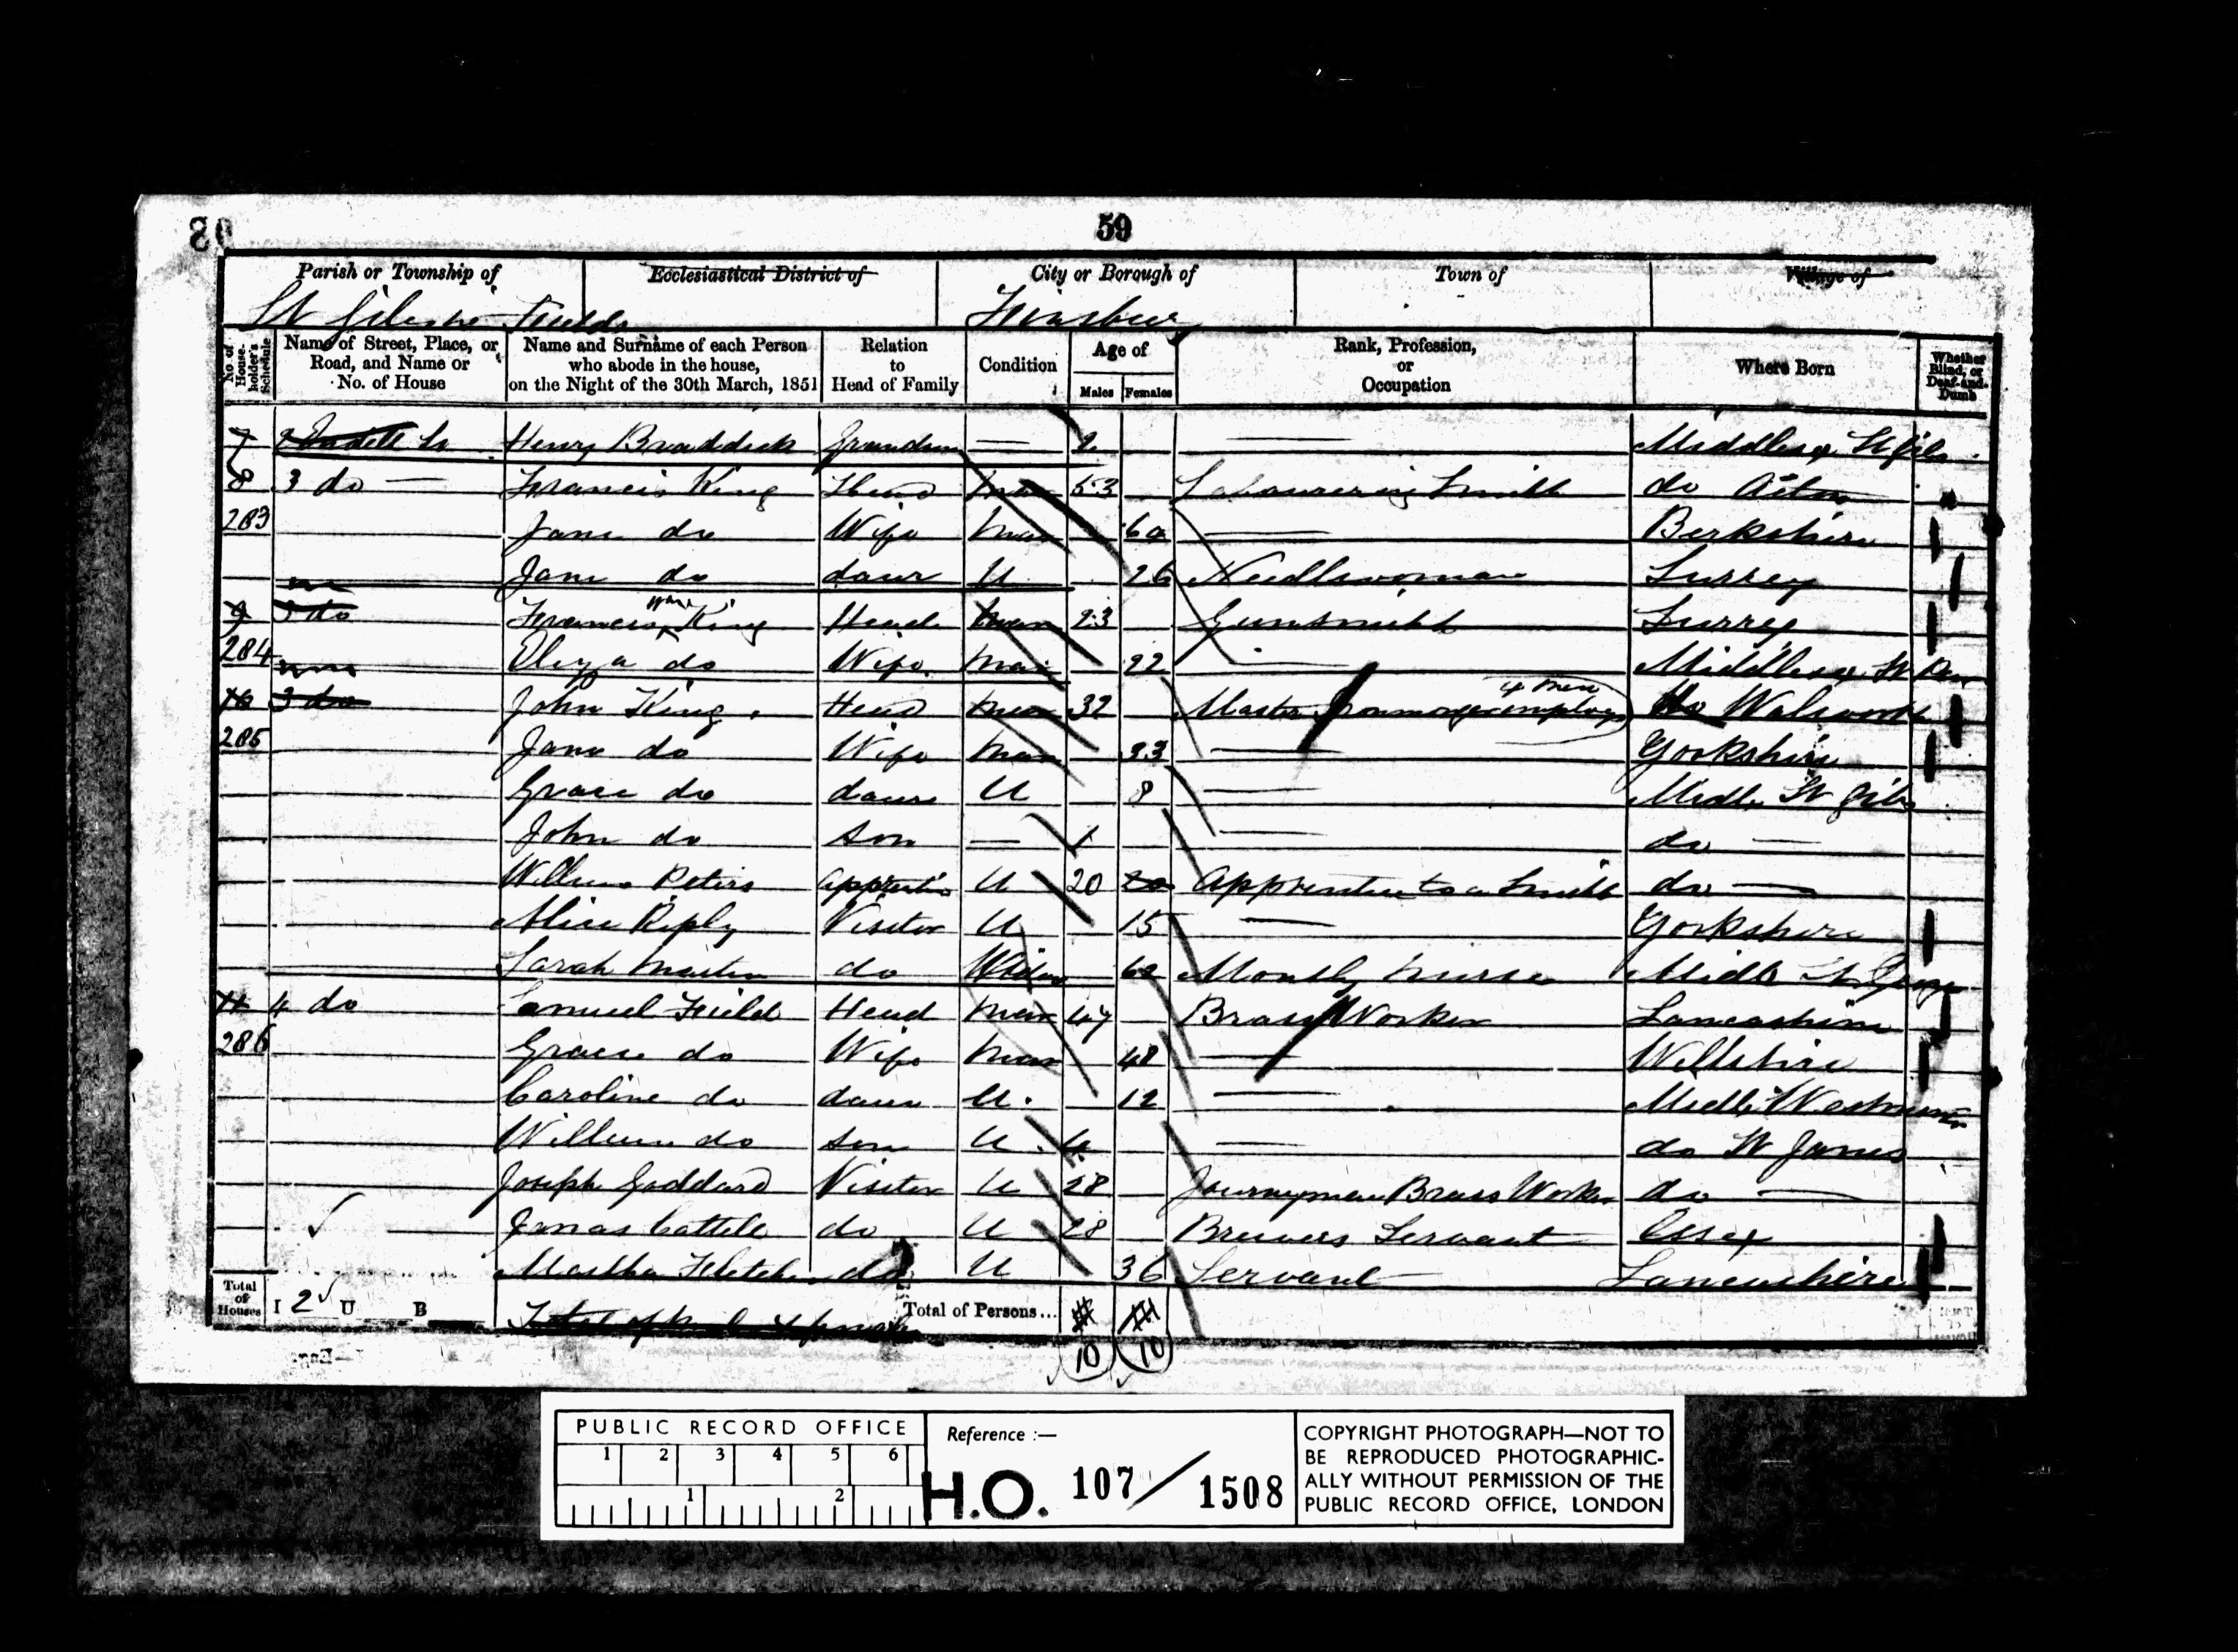 59
Parish or Township of Ecclesiastical District of City or Borough of Town of Village of
St Giles Fields Finsbury
No. of Householder's Schedule Name of Street, Place, or Road, and Name or No. of House Name and Surname of each Person who abode in the house, on the Night of the 30th March, 1851 Relation to Head of Family Condition Age of Males Females Rank, Profession, or Occupation Where Born Whether Blind, or Deaf-and-Dumb
7 Henry Braddick Grandson — 2 — Middlesex St Giles
8 3 do — Francis King Head Mar 53 Smith do
283 Jane do Wife Mar — Berkshire
Jane do daur U 26 Needlewoman Surrey
9 3 do Francis King Head Mar 23 Gunsmith Surrey
284 Eliza do Wife Mar 22 — Middlesex St
10 3 do John King Head Mar 32 Master Ironmonger employs 4 men do Walworth
285 Jane do Wife Mar 33 — Yorkshire
Grace do daur U 8 — Middx St Giles
John do son — 1 — do —
William Peters apprentice U 20 20 Apprentice to a Smith do —
Alice Riply Visitor U 15 — Yorkshire
Sarah Martin do Widow 62 Monthly Nurse Middx St
11 4 do Samuel Field Head Mar 47 Brass Worker Lancashire
286 Grace do Wife Mar 48 — Wiltshire
Caroline do daur U 12 — Middx
William do son U 4 — do St James
Joseph Goddard Visitor U 28 Journeyman Brass Worker do —
Cattell do U 28 Brewers Servant Essex
Martha Fletcher do U 36 Servant Lancashire
Total of Houses I 2 U B Total of Persons... 10 10
PUBLIC RECORD OFFICE
1 2 3 4 5 6
1 2
Reference :—
H.O. 107/1508
COPYRIGHT PHOTOGRAPH—NOT TO
BE REPRODUCED PHOTOGRAPHIC-
ALLY WITHOUT PERMISSION OF THE
PUBLIC RECORD OFFICE, LONDON